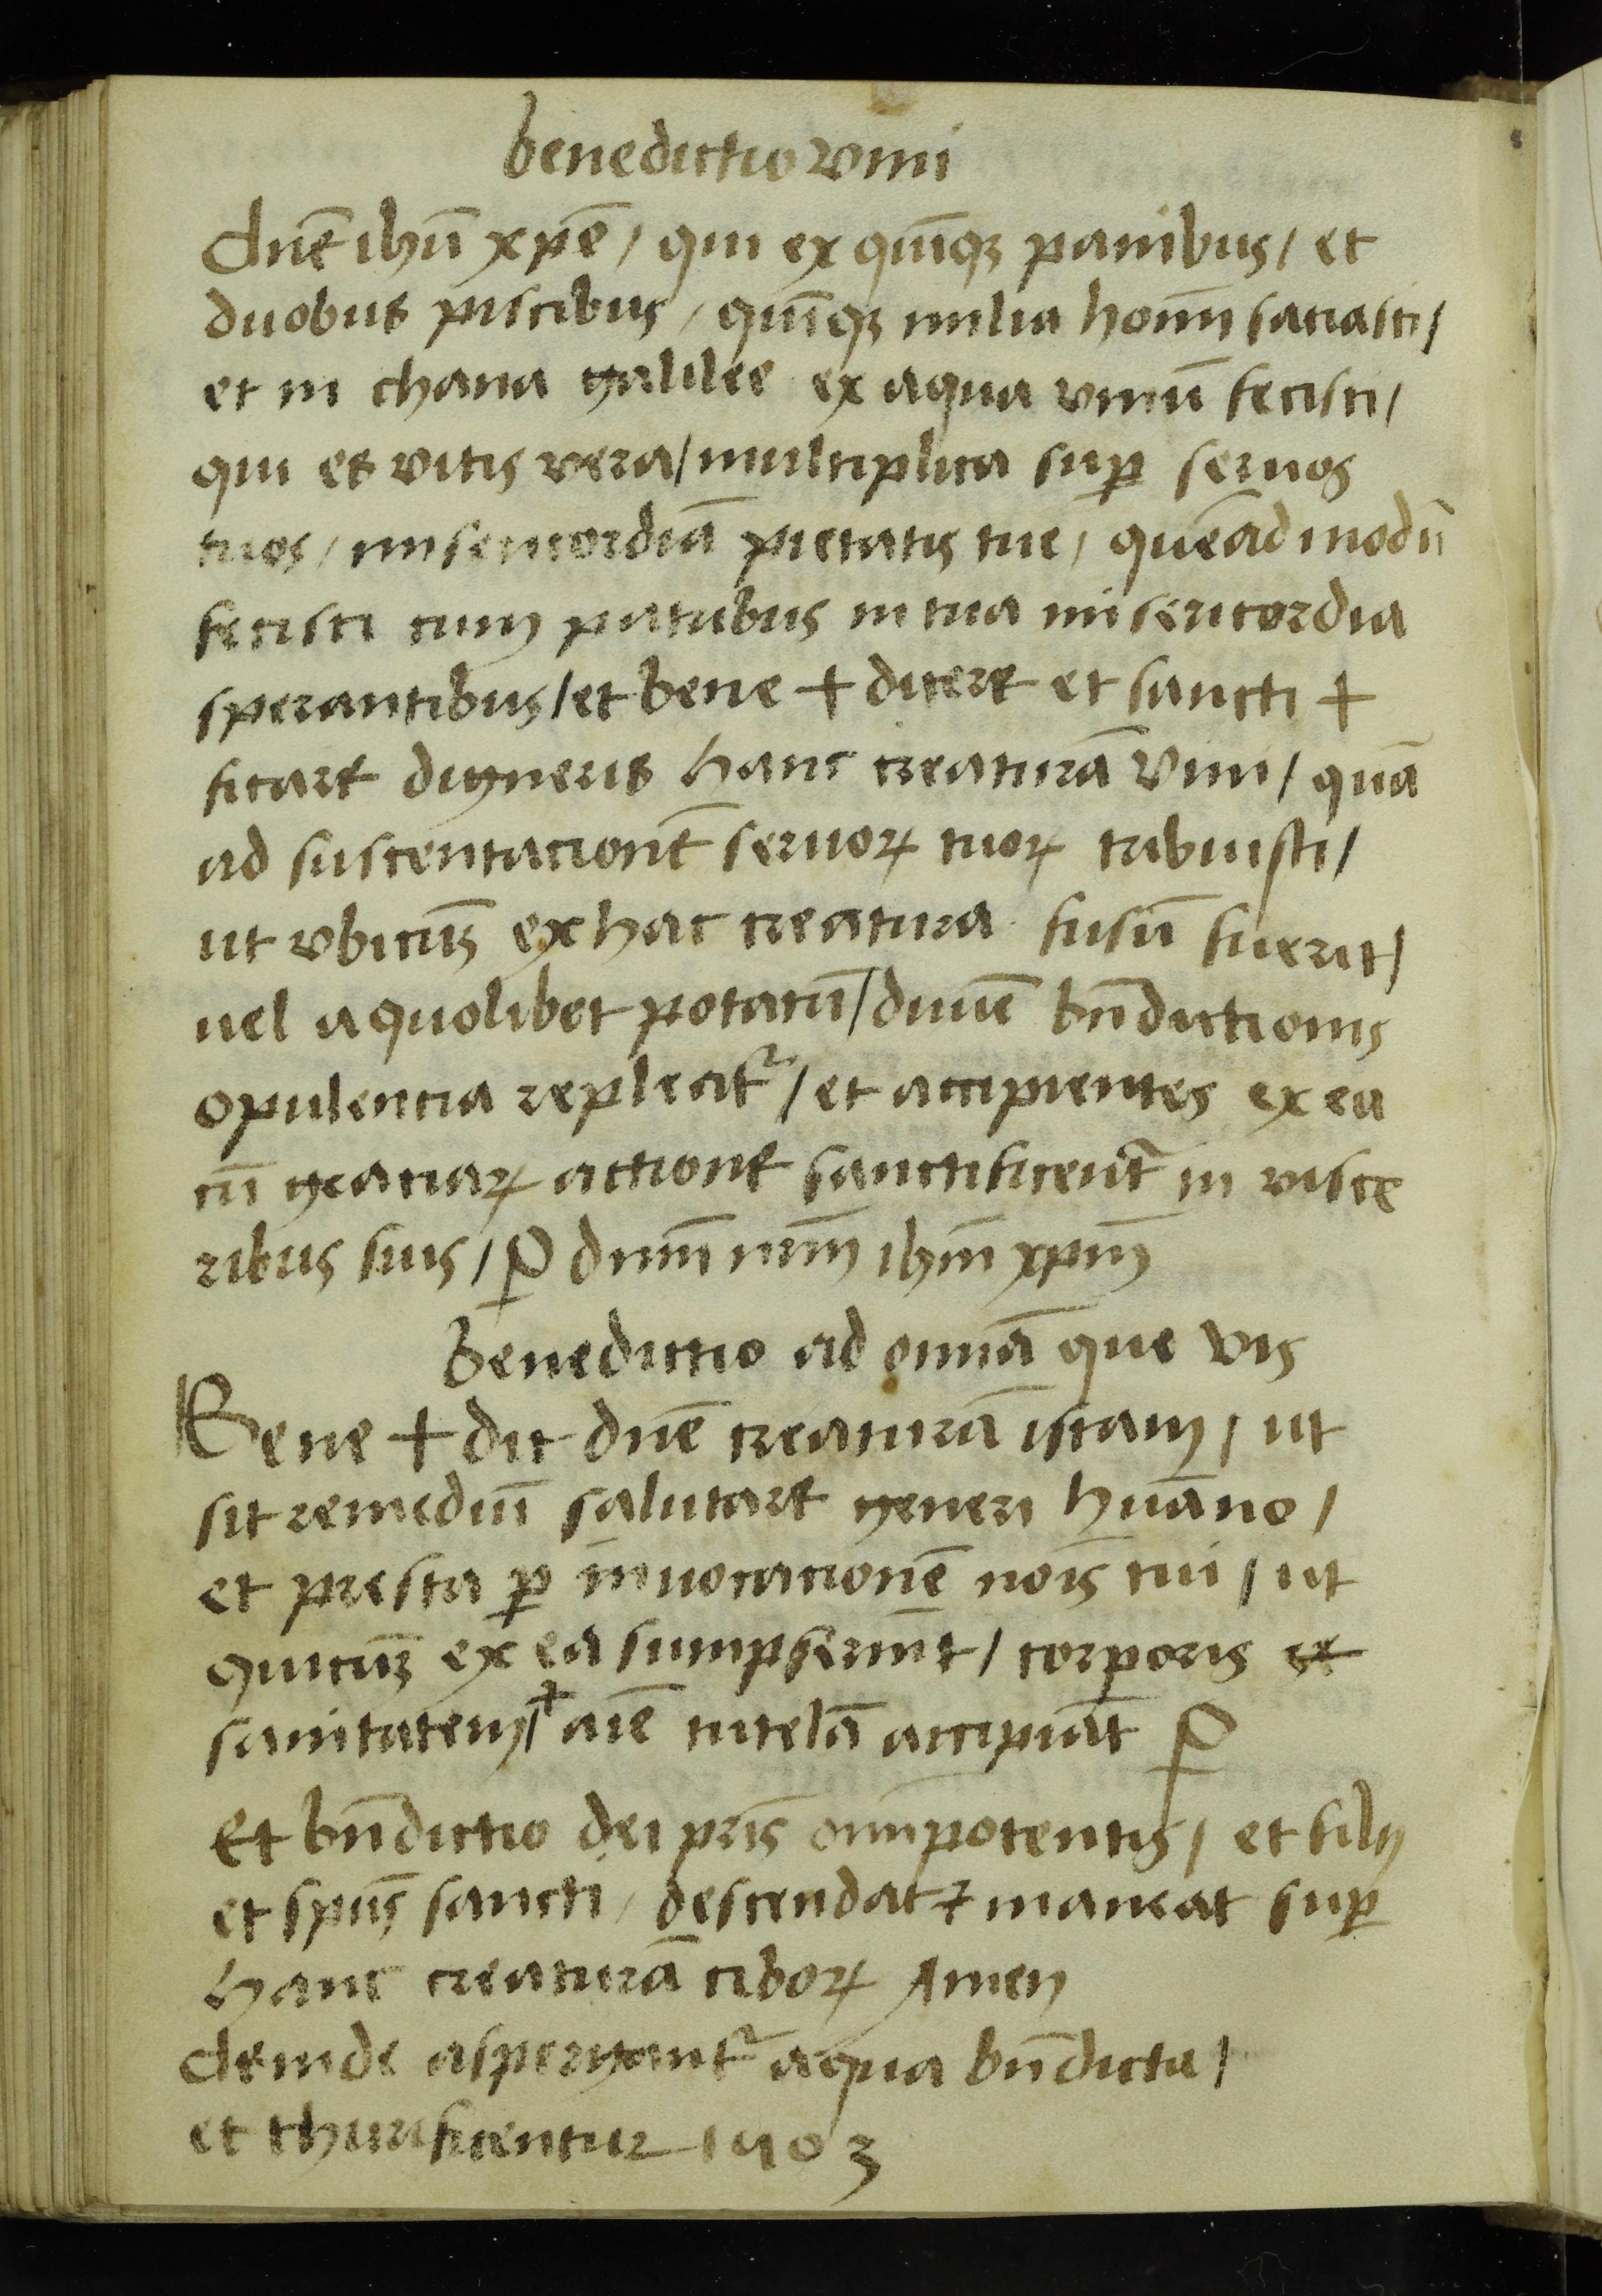 benedictio vini
dnē ihū xpē / qui ex quīqꝫ panibus / et
duobus piscibus / quīqꝫ milia homī saciasti /
et in chana galilee ex aqua vinū fecisti /
qui es vitis vera / multiplica suꝑ seruos
tuos / misericordiā pietatis tue / quēadmodū
fecisti cum patribus in tua misericordia
sperantibus / et bene + dicere et sancti +
ficare digneris hanc creaturā vini / quā
ad sustentacionē seruoꝝ tuoꝝ tribuisti /
ut vbicūꝫ ex hac creatura fusū fuerit /
uel a quolibet potatū / diuīe bn̄dictionis
opulencia repleatᷣ / et accipientes ex ea
cū graciaꝝ actione sanctificentᷣ in visce
ribus suis / P dnm̄ nr̄m ihm̄ xpm̄
benedictio ad omnia que vis
Bene + dic dnē creaturā istam / ut
sit remediū salutare generi huāno /
et presta ꝑ inuocationē nois̄ tui / ut
quicūꝫ ex ea sumpserīt / corporis et
sanitatem / + aīe tutelā accipiāt P
Et bn̄dictio dei pris̄ omīpotentis / et filij
et spūs sancti / descendat ⁊ maneat suꝑ
hanc creaturā ciboꝝ Amen
deinde aspergantᷣ aqua bn̄dicta /
et thurificentur 1503